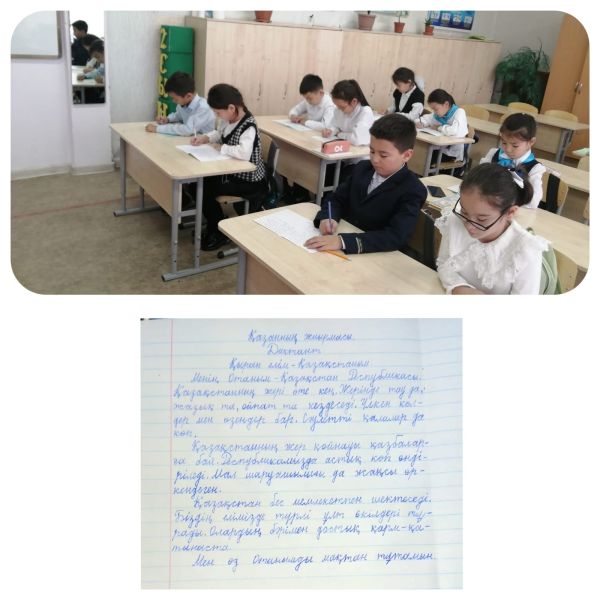 2 СЫН
Қазанның жиырмасы.
Диктант
Қыран елім - Қазақстаным.
Менің Отаным - Қазақстан Республикасы.
Қазақстанның жері өте кең. Жерінде тау да,
жазық та, ойпат та кездеседі. Үлкен көл-
дер мен өзендер бар. Сәулетті қалалар да
көп.
Қазақстанның жер қойнауы қазбалар-
ға бай. Республикамызда астық көп өнді-
ріледі. Мал шаруашылығы да жақсы өр-
кендеген.
Қазақстан бес мемлекетпен шектеседі.
Біздің елімізде түрлі ұлт өкілдері тұ-
рады. Олардың бәрімен достық қарм-қа-
тынаста.
Мен өз Отанымды мақтан тұтамын.